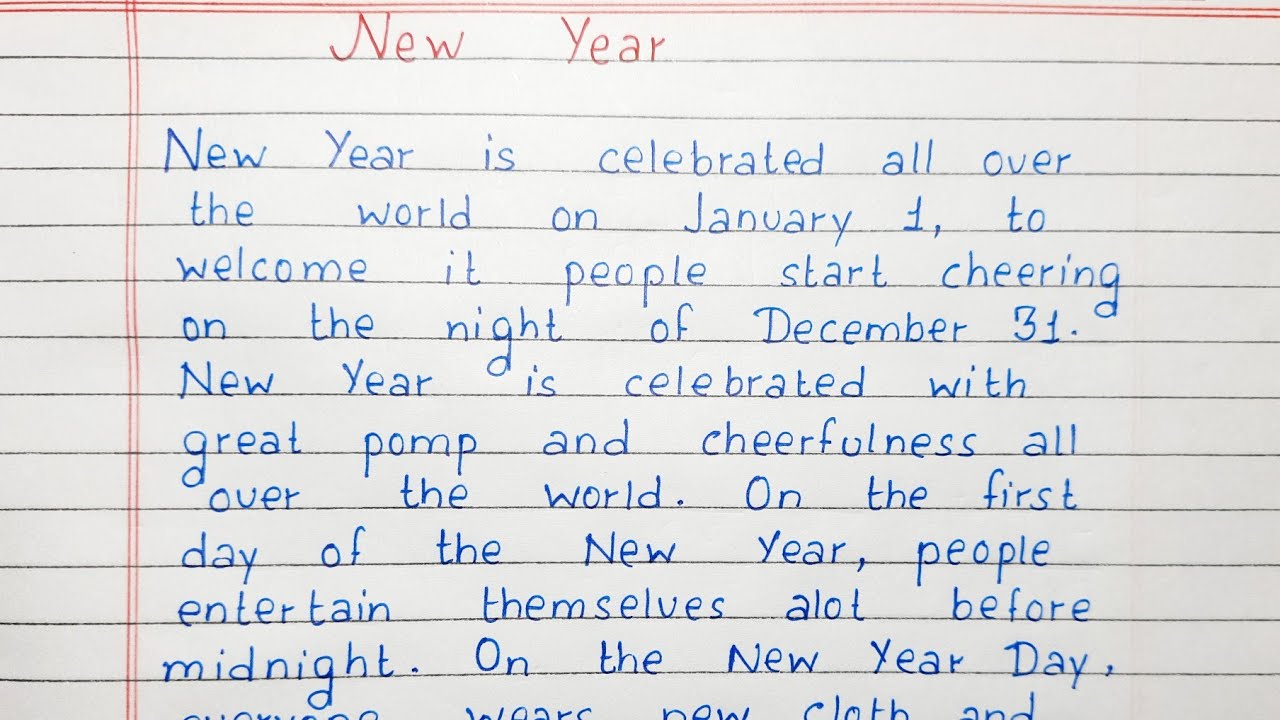 New Year
New Year is celebrated all over
the world on January 1, to
welcome it people start cheering
on the night of December 31.
New Year is celebrated with
great pomp and cheerfulness all
over the world. On the first
day of the New Year, people
entertain themselves alot before
midnight. On the New Year Day,
everyone wears new cloth and